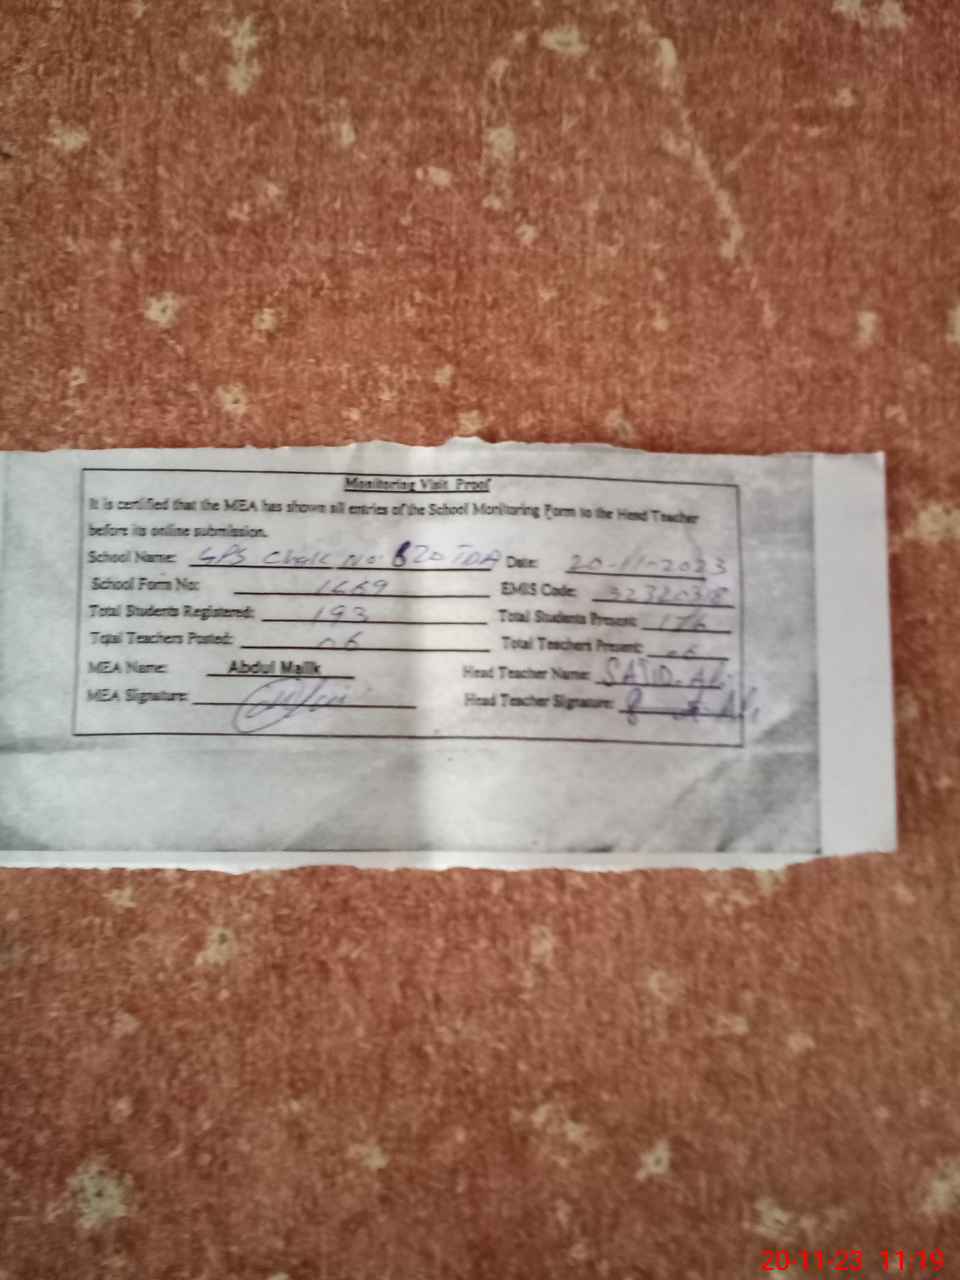 Monitoring Visit Proof
It is certified that the MEA has shown all entries of the School Monitoring Form to the Head Teacher
before its online submission.
School Name: GPS Chak No 620 TDA Date: 20-11-2023
School Form No: 1669 EMIS Code: 32320318
Total Students Registered: 193 Total Students Present: 176
Total Teachers Posted: 06 Total Teachers Present: 06
MEA Name: Abdul Malik Head Teacher Name: SAJID. Ali
MEA Signature: Head Teacher Signature:
20-11-23 11:19